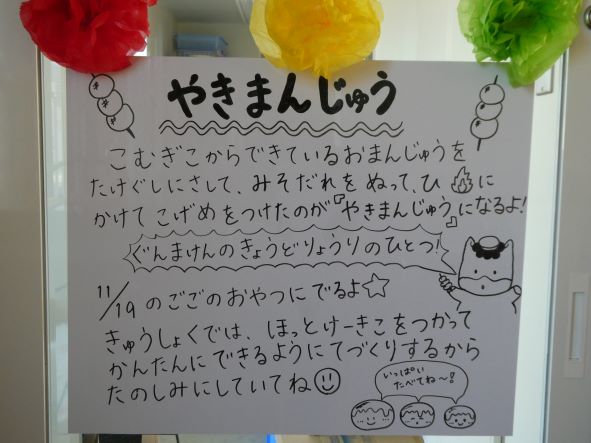 やきまんじゅう
こむぎこからできているおまんじゅうを
たけぐしにさして、みそだれをぬって、ひ🔥に
かけてこげめをつけたのが『やきまんじゅう』になるよ!
ぐんまけんのきょうどりょうりのひとつ!
11/19のごごのおやつにでるよ☆
きゅうしょくでは、ほっとけーきこをつかって
かんたんにできるようにてづくりするから
たのしみにしていてね☺
いっぱい
たべてね〜!